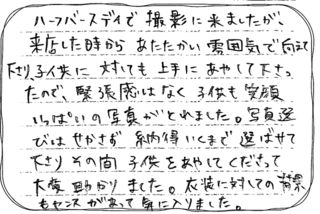 ハーフバースディで撮影に来ましたが、
来店した時からあたたかい雰囲気で向えて
下さり、子供に対しても上手にあやして下さっ
たので、緊張感はなく子供も笑顔
いっぱいの写真がとれました。写真選
びはせかさず納得いくまで選ばせて
下さりその間子供をあやしてくださって
大変助かりました。衣装に対しての背景
もセンスがあって気に入りました。